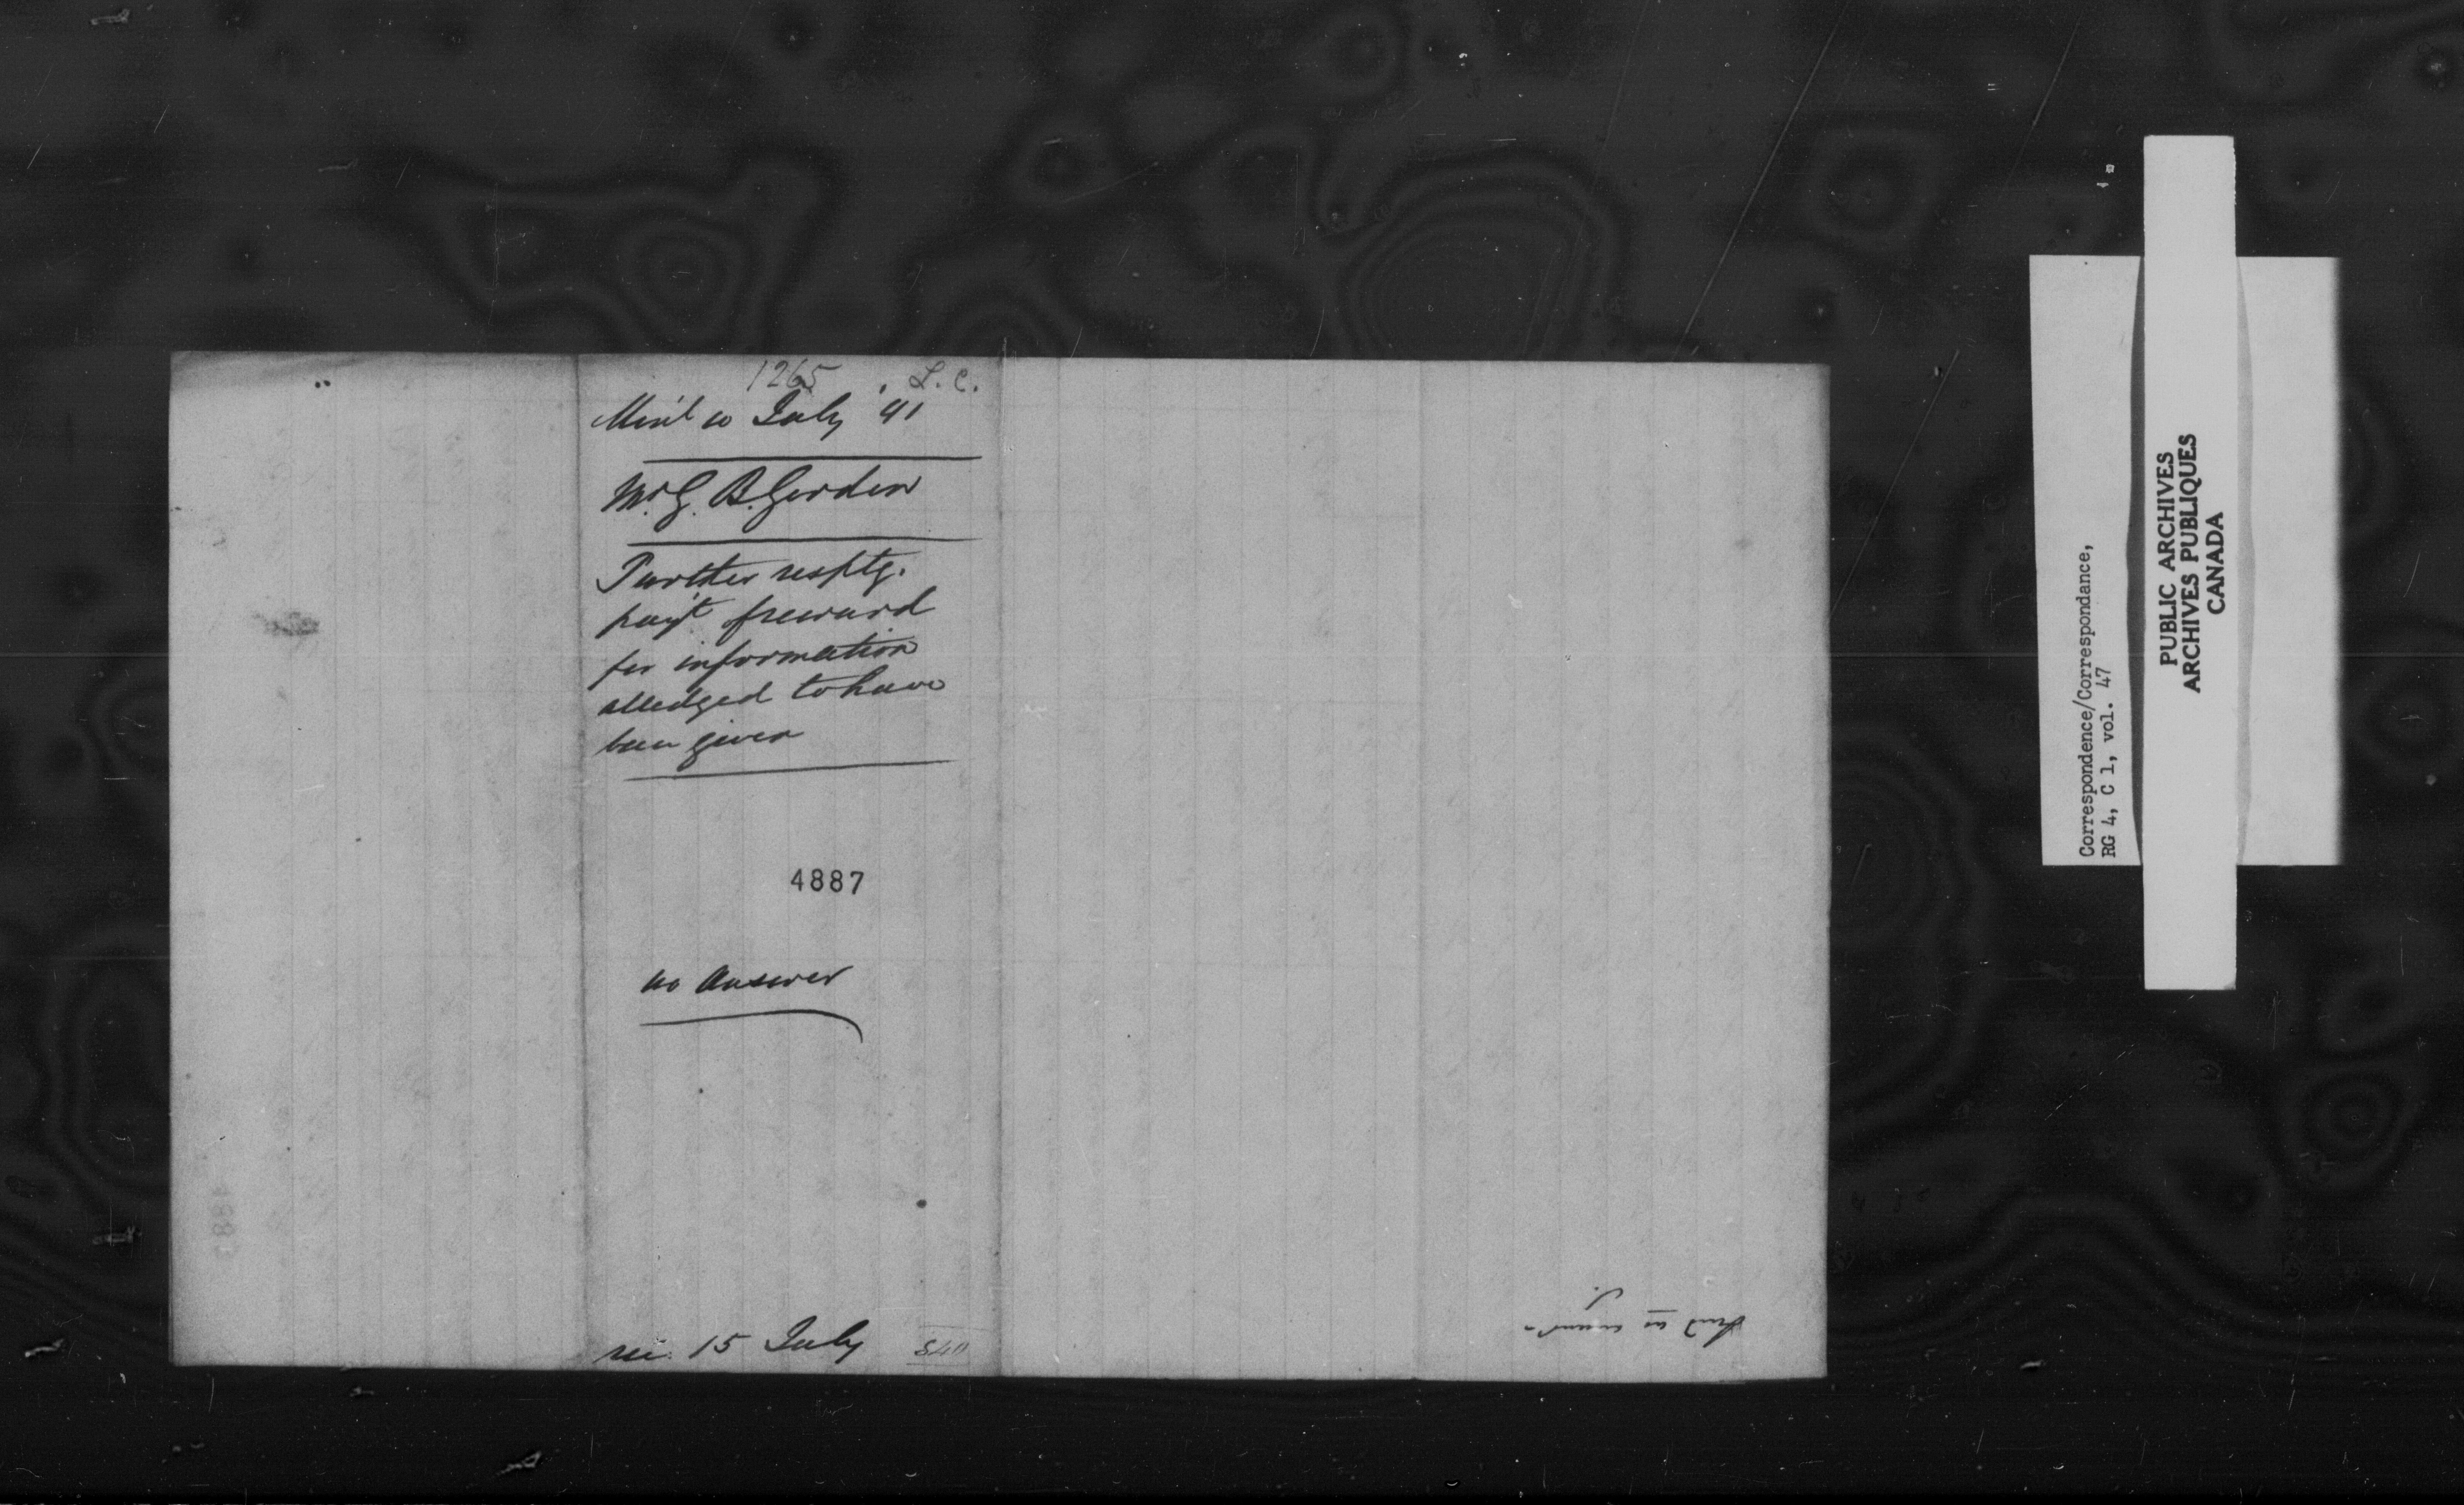 1265 . L. C.
Me'al 10 July 41
Mr. G. B. Gordon
Further resptg.
pay't of reward
for information
alledged to have
been given
4887
no Answer
rec. 15 July 840
Correspondence/Correspondance,
RG 4, C 1, vol. 47
PUBLIC ARCHIVES
ARCHIVES PUBLIQUES
CANADA